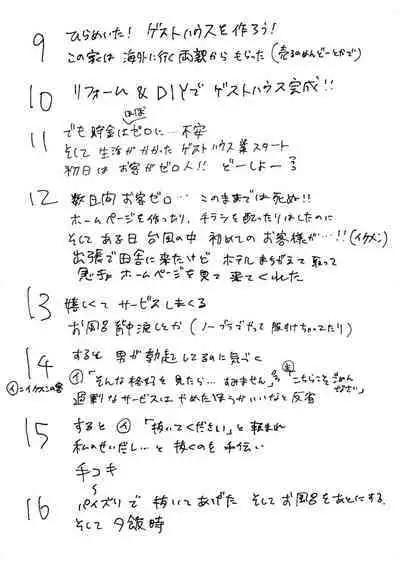 9 ひらめいた! ゲストハウスを作ろう!
この家は 海外に行く両親から もらった (売るのめんどーとかで)
10 リフォーム & DIYで ゲストハウス完成!!
11 ほぼ
でも貯金はゼロに… 不安
そして 生活がかかった ゲストハウス業スタート
初日は お客がゼロ人!! どーしよー
12 数日間 お客ゼロ… このままでは死ぬ!!
ホームページを作ったり、チラシを配ったりしたのに
そして ある日 台風の中 初めての お客様が…!! (イケメン)
出張で田舎に来たけど ホテル まちがえて 取って
急ぎで ホームページを見て 来てくれた
13 嬉しくて サービスしまくる
お風呂 背中流しとか (ノーブラでやって 透けちゃってたり)
14 すると 男が勃起してるのに気づく
イ=イケメンの客
イ「そんな格好を見たら… すみません」 「こちらこそごめんなさい」
過剰なサービスは やめたほうがいいなと 反省
15 すると イ「抜いてください」と 頼まれ
私のせいだし…と 抜くのを 手伝い
手コキ
16 パイズリで 抜いてあげた そして お風呂をあとにする。
そして 夕飯時